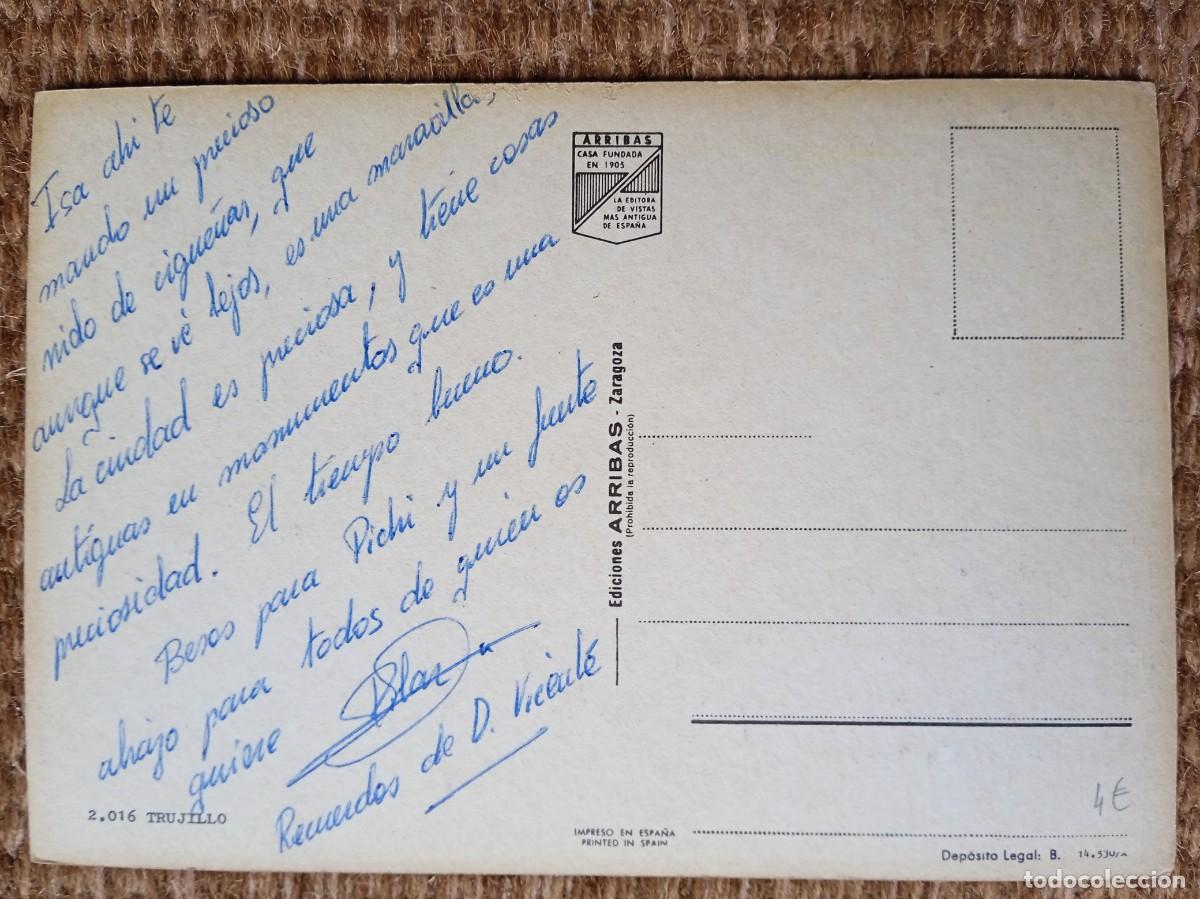 Isa ahi te
mando un precioso
nido de cigueñas, que
aunque se vé lejos, es una maravilla,
La ciudad es preciosa, y tiene cosas
antíguas en monumentos que es una
preciosidad. El tiempo bueno.
Besos para Pichi y un fuerte
abrazo para todos de quien os
quiere
Recuerdos de D. Vicente
2.016 TRUJILLO
ARRIBAS
CASA FUNDADA
EN 1905
LA EDITORA
DE VISTAS
MAS ANTIGUA
DE ESPAÑA
Ediciones ARRIBAS - Zaragoza
(Prohibida la reproducción)
IMPRESO EN ESPAÑA
PRINTED IN SPAIN
4€
Depósito Legal: B.
todocoleccion